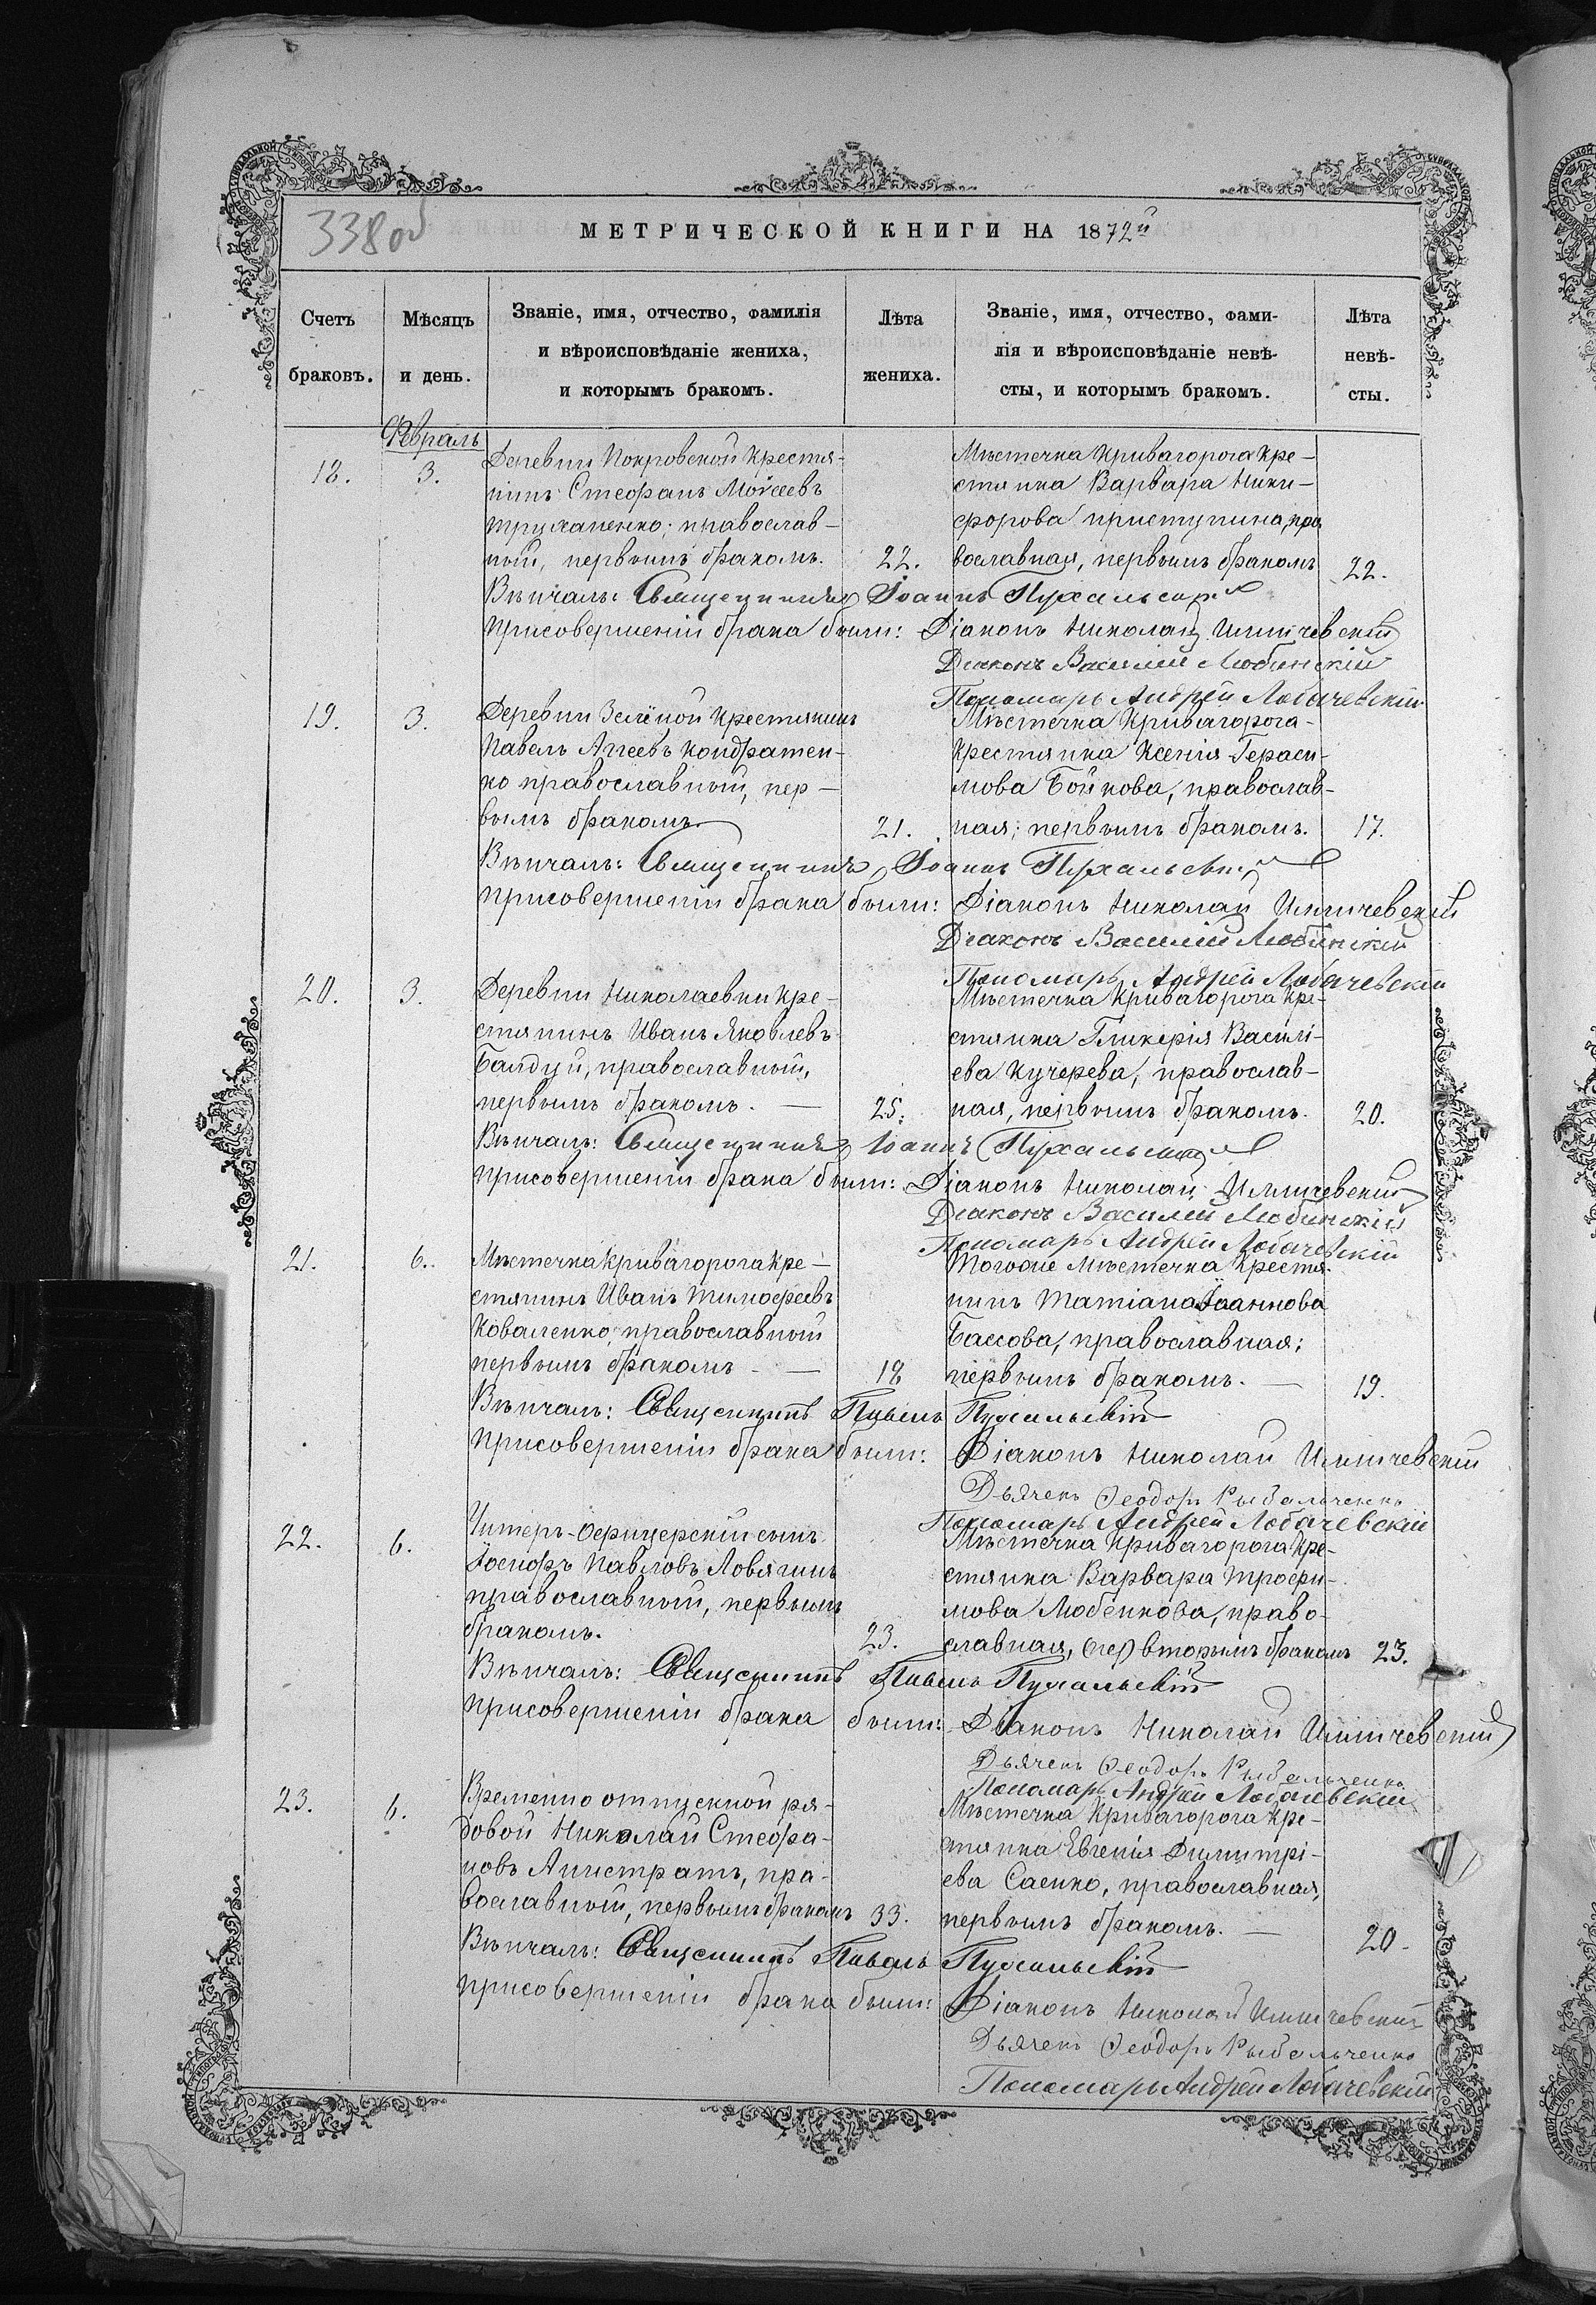 338 об
МЕТРИЧЕСКОЙ КНИГИ НА 1872й
Счетъ браковъ.
Мѣсяцъ и день.
Званіе, имя, отчество, фамилія
и вѣроисповѣданіе жениха,
и которымъ бракомъ.
Лѣта жениха.
Званіе, имя, отчество, фами-
лія и вѣроисповѣданіе невѣ-
сты, и которымъ бракомъ.
Лѣта
невѣ-
сты.
Февраль
18.
3.
Деревни Покровской крестя-
нинъ Стефанъ Мойсеевъ
Труханенко; православ-
ный, первымъ бракомъ.
22.
Мѣстечка Кривагорога кре-
стянка Варвара Ники-
форова Приступина, пра
вославная, первымъ бракомъ
22.
Вѣнчалъ: Священникъ Іоаннъ Пухальскій
При совершеніи брака были: Діаконъ Николай Илличевскій
Діаконъ Василій Любинскій
Пономарь Андрей Лобачевскій
19.
3.
Деревни Зелёной крестянинъ
Павелъ Агеевъ Кондратен-
ко православный, пер-
вымъ бракомъ
21.
Мѣстечка Кривагорога
крестянка Ксенія Гераси-
мова Бойкова, православ-
ная; первымъ бракомъ.
17.
Вѣнчалъ: Священникъ Іоаннъ Пухальскій
При совершеніи брака были: Діаконъ Николай Илличевскій
Діаконъ Василій Любинскій
Пономарь Андрей Лобачевскій
20.
3.
Деревни Николаевки кре-
стянинъ Иванъ Яковлевъ
Балдуй, православный,
первымъ бракомъ.
25.
Мѣстечка Кривагорога кре-
стянка Гликерія Василі-
ева Кучерева, православ-
ная, первымъ бракомъ.
20.
Вѣнчалъ: Священникъ Іоаннъ Пухальскій
При совершеніи брака были: Діаконъ Николай Илличевскій
Діаконъ Василій Любинскій
Пономарь Андрей Лобачевскій
21.
6.
Мѣстечка Кривагорога кре-
стянинъ Иванъ Тимофеевъ
Коваленко, православный
первымъ бракомъ
18
Тогоже мѣстечка крестя-
нинъ Татіана Іоаннова
Бассова, православная;
первымъ бракомъ.
19.
Вѣнчалъ: Священникъ Павелъ Пухальскій
При совершеніи брака были: Діаконъ Николай Илличевскій
Дьячекъ Ѳеодоръ Рыбальченко
Пономарь Андрей Лобачевскій
22.
6.
Унтеръ-Офицерскій сынъ
Іосифъ Павловъ Ловягинъ
православный, первымъ
бракомъ.
23.
Мѣстечка Кривагорога кре-
стянка Варвара Трофи-
мова Любенкова, право-
славная, (пер) вторымъ бракомъ
23.
Вѣнчалъ: Священникъ Павелъ Пухальскій
При совершеніи брака были: Діаконъ Николай Илличевскій
Дьячекъ Ѳеодоръ Рыбальченко
Пономарь Андрей Лобачевскій
23.
6.
Временно отпускной ря-
довой Николай Стефа-
новъ Апистратъ, пра-
вославный, первымъ бракомъ
33.
Мѣстечка Кривагорога кре-
стянка Евгенія Димитрі-
ева Саенко, православная,
первымъ бракомъ.
20.
Вѣнчалъ: Священникъ Павелъ Пухальскій
При совершеніи брака были: Діаконъ Николай Илличевскій
Дьячекъ Ѳеодоръ Рыбальченко
Пономарь Андрей Лобачевскій